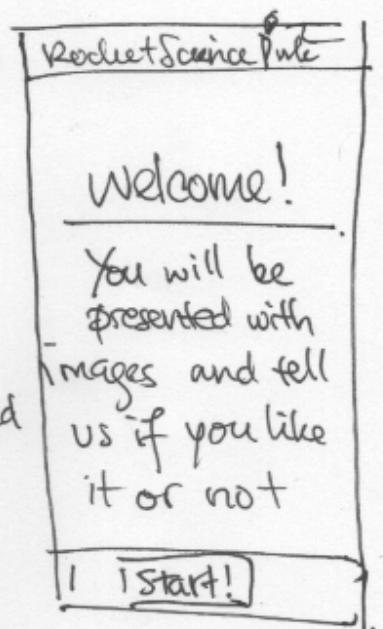 RocketScience
Welcome!
You will be
presented with
images and tell
us if you like
it or not
Start!